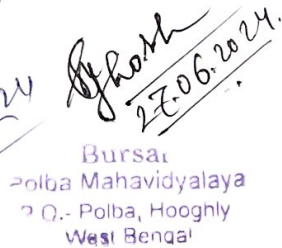 Ghosh
27.06.2024.
Bursar
Polba Mahavidyalaya
P.O.- Polba, Hooghly
West Bengal